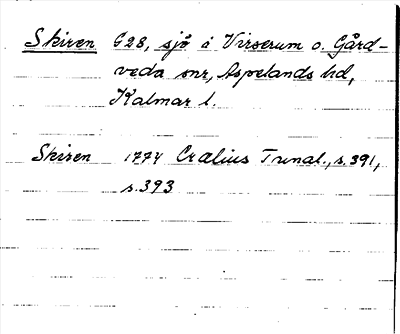 Skiren G28, sjö i Virserum o. Gård-
veda snr, Aspelands hd,
Kalmar l.
Skiren 1774 Crælius Tunal., s. 391,
s. 393